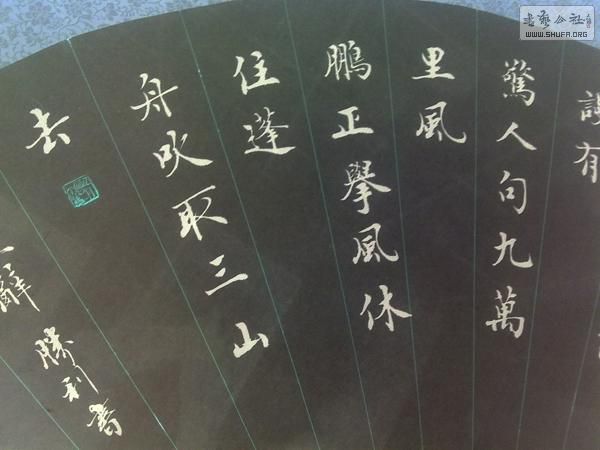 謾有
驚人句九萬
里風
鵬正擧風休
住蓬
舟吹取三山
去
辭
勝利書
書藝公社
WWW.SHUFA.ORG